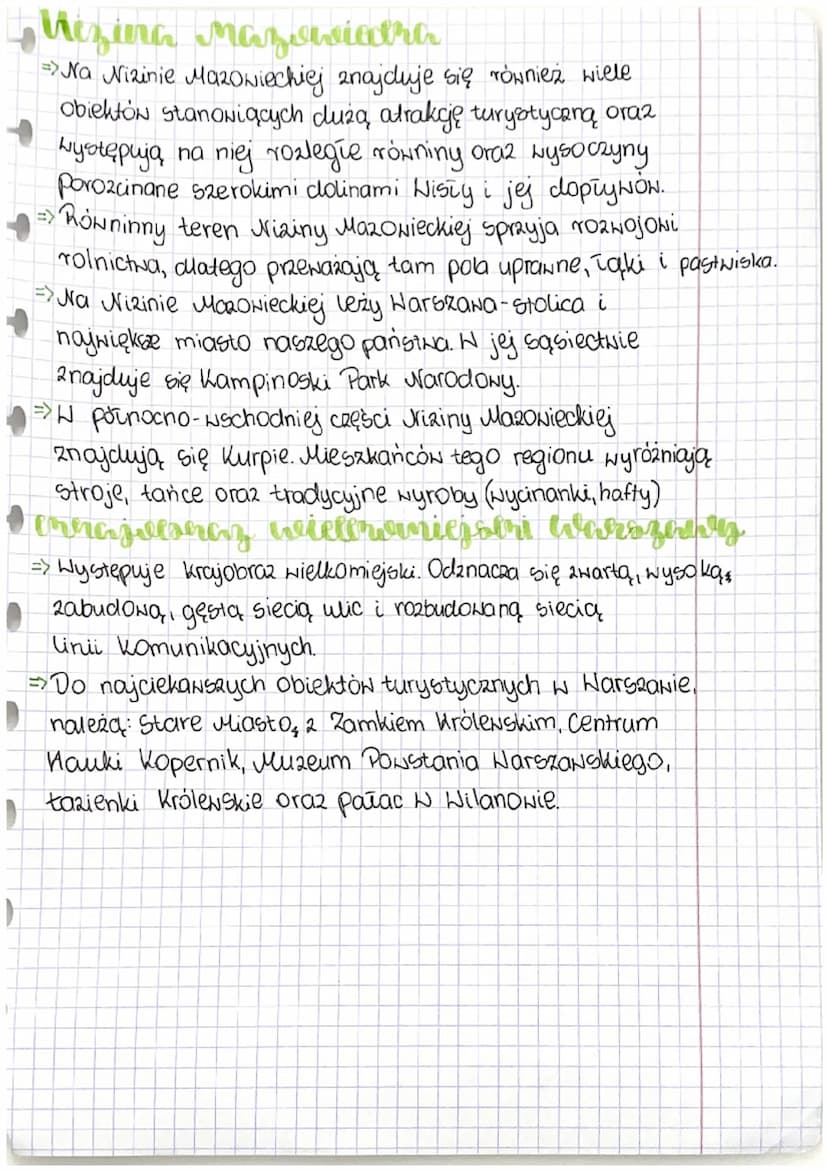 Nizina Mazowiecka
=> Na Nizinie Mazowieckiej znajduje się również wiele
obiektów stanowiących dużą atrakcję turystyczną oraz
występują na niej rozległe równiny oraz wysoczyny
porozcinane szerokimi dolinami Wisły i jej dopływów.
=> Równinny teren Niziny Mazowieckiej sprzyja rozwojowi
rolnictwa, dlatego przeważają tam pola uprawne, łąki i pastwiska.
=> Na Nizinie Mazowieckiej leży Warszawa - stolica i
największe miasto naszego państwa. W jej sąsiectwie
znajduje się Kampinoski Park Narodowy.
=> W północno-wschodniej części Niziny Mazowieckiej
znajdują się Kurpie. Mieszkańców tego regionu wyróżniają
stroje, tańce oraz tradycyjne wyroby (wycinanki, hafty)
Krajobraz wielkomiejski Warszawy
=> Występuje krajobraz wielkomiejski. Odznacza się zwartą, wysoką,
zabudową, gęstą siecią ulic i rozbudowaną siecią
linii komunikacyjnych.
=> Do najciekawszych obiektów turystycznych w Warszawie,
należą: Stare Miasto, z Zamkiem Królewskim, Centrum
Nauki Kopernik, Muzeum Powstania Warszawskiego,
Łazienki Królewskie oraz pałac w Wilanowie.